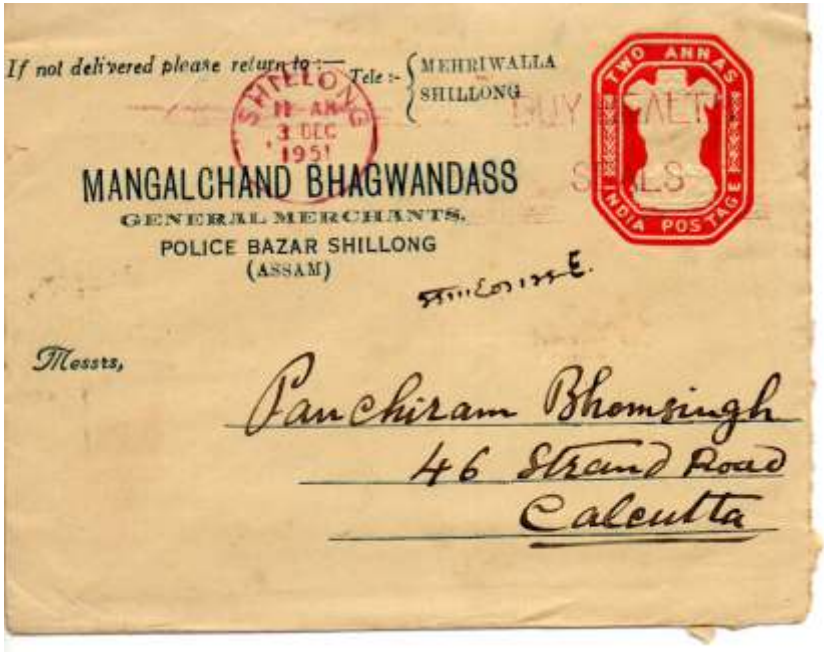 If not delivered please return to :—
Tele :-
MEHRIWALLA
SHILLONG
TWO ANNAS
INDIA POSTAGE
SHILLONG
11 AM
3 DEC
1951
BUY
SEALS
MANGALCHAND BHAGWANDASS
GENERAL MERCHANTS,
POLICE BAZAR SHILLONG
(ASSAM)
E.
Messrs,
Panchiram Bhomsingh
46 Strand Road
Calcutta